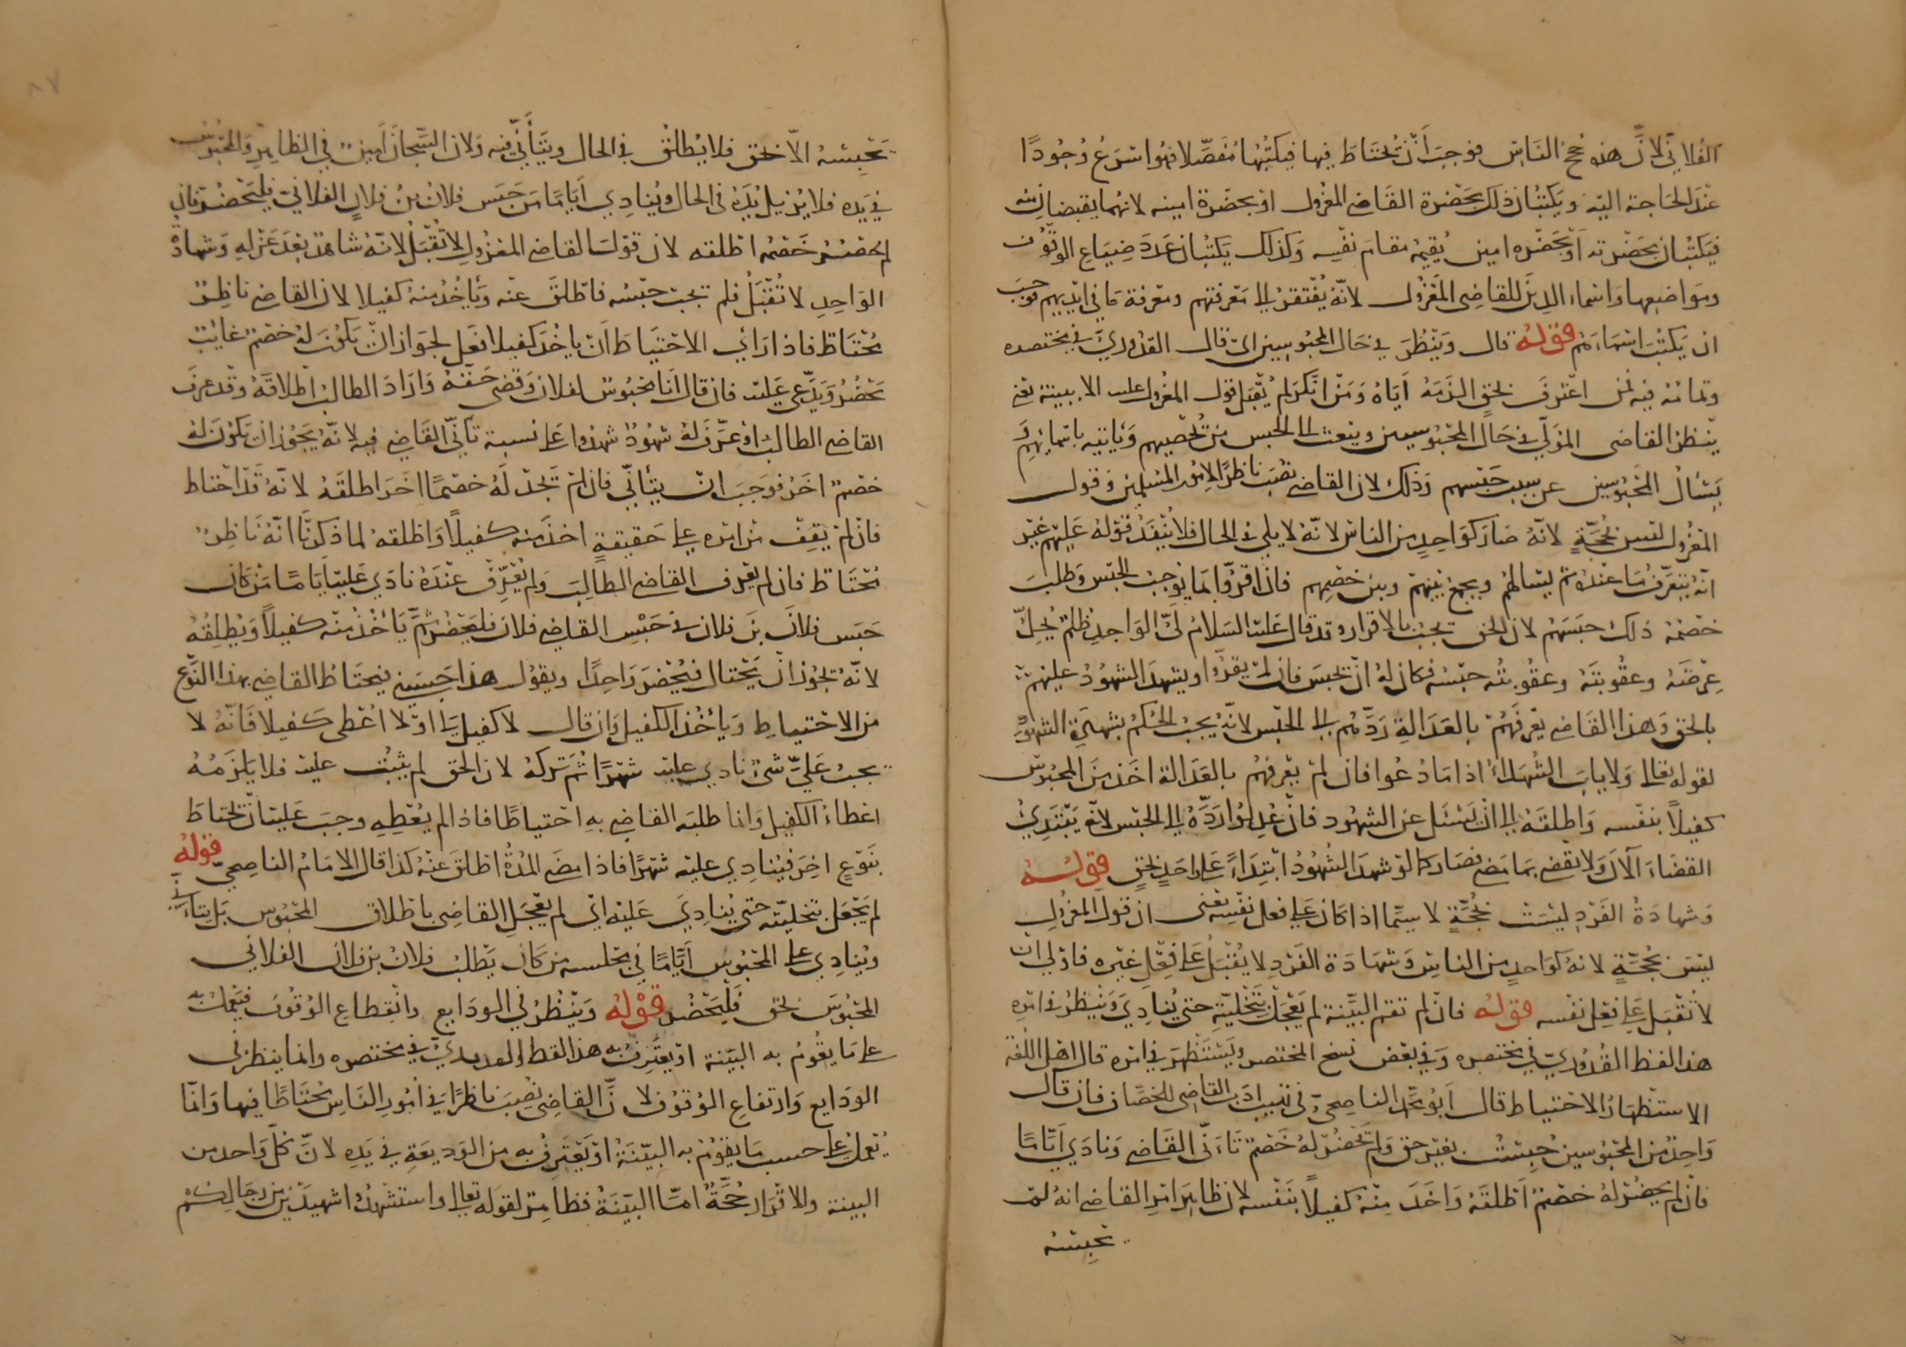 الفلاني لان هذه حجج الناس فوجب أن تحتاط فيها فيكتبها مفصلا فهو اسرع وجودا
عند الحاجة اليه ويكتبان ذلك بحضرة القاضي المعزول او بحضرة امينه لانهما يقبضان منه
فيكتبان بحضرته او بحضرة امين يقيمه مقام نفسه وكذلك يكتبان عدد ضياع الوقوف
ومواضعها واسماء الذين للقاضي المعزول لانه يفتقر الى معرفتهم ومعرفة ما في ايديهم فوجب
ان يكتب اسماءهم قوله قال وينظر في حال المحبوسين اى قال القدوري في مختصره
وتمامه فيه فمن اعترف بحق الزمه اياه ومن انكر لم يقبل قول المعزول عليه الا ببينة يعني
ينظر القاضي المولى في حال المحبوسين ويبعث الى الحبس من يحصيهم ويأتيه باسمائهم و
يسأل المحبوسين عن سبب حبسهم وذلك لان القاضي نصب ناظرا لامور المسلمين وقول
المعزول ليس بحجة لانه صار كواحد من الناس لانه لا يلي في الحال فلا ينفذ قوله عليهم غير
انه يتعرف ما عنده ثم يسألهم ويجمع بينهم وبين خصمهم فاذا اقروا بما يوجب الحبس وطلب
خصمه ذلك حبسهم لان الحق يجب بالاقرار وقد قال عليه السلام لي الواجد ظلم يحل
عرضه وعقوبته وعقوبته حبسه فكان له ان يحبس فان لم يقروا ويشهد الشهود عليهم
بالحق وهذا القاضي يعرفهم بالعدالة ردهم الى الحبس لانه يجب الحكم بشهادة الشهود
لقوله تعالى ولا ياب الشهداء اذا ما دعوا فان لم يعرفهم بالعدالة اخذ من المحبوس
كفيلا بنفسه واطلقه الى ان يسئل عن الشهود فان عدلوا رده الى الحبس لانه يبتدئ
القضاء الآن ولا يقضي بما مضى فصار كما لو شهد الشهود ابتداء على واحد بحق قوله
وشهادة الفرد ليست بحجة لا سيما اذا كان على فعل نفسه يعني ان قول المعزول
ليس بحجة لانه كواحد من الناس وشهادة الفرد لا يقبل على فعل غيره فاذلى ان
لا تقبل على فعل نفسه قوله فان لم تقم البينة لم يعجل بتخليته حتى ينادي وينظر في امره
هذا لفظ القدوري في مختصره وفي بعض نسخ المختصر ويستظهر في امره قال اهل اللغة
الاستظهار الاحتياط قال ابو محمد الناصحي في تهذيب ادب القاضي للخصاف فان قال
واحد من المحبوسين حبست بغير حق ولم يحضر له خصم تأنى القاضي ونادى اياما
فان لم يحضر له خصم اطلقه واخذ منه كفيلا بنفسه لان ظاهر امر القاضي انه لم
يحبسه
يحبسه الا بحق فلا يطلق في الحال ويتأنى فيه ولان السجان امين في الظاهر والمحبوس
في يده فلا يزيل يده في الحال وينادي اياما من حبس فلان بن فلان الفلاني فليحضر فان
لم يحضر خصم اطلقه لان قول القاضي المعزول لا تقبل لانه شاهد بعد عزله وشهادة
الواحد لا تقبل فلم يجب حبسه فاطلق عنه ويأخذ منه كفيلا لان القاضي ناظر
محتاط فاذا رأى الاحتياط ان ياخذ كفيلا فعل لجواز ان يكون له خصم غائب
يحضر ويدعي عليه فان قال انا محبوس لفلان وقضى حقه واراد الطالب اطلاقه وقد عرف
القاضي الطالب او عرف له شهود شهدوا على نسبه تأنى القاضي فيه لانه يجوز ان يكون له
خصم آخر فوجب ان يتأنى فان لم تجد له خصما اخر اطلقه لانه قد احتاط
فان لم يقف من امره على حقيقة اخذ منه كفيلا واطلقه لما ذكرنا انه ناظر
محتاط فان لم يعرف القاضي الطالب ولم يعرف عنده نادى عليه اياما من كان
حبس فلان بن فلان في حبس القاضي فلان فليحضر ثم يأخذ منه كفيلا ويطلقه
لانه يجوز ان يحتال فيحضر واحدا ويقول هذا حبسني فيحتاط القاضي بهذا النوع
من الاحتياط ويأخذ الكفيل وان قال لا كفيل لي او لا اعطي كفيلا فانه لا
يجب علي شئ نادى عليه شهرا ثم تركه لان الحق لم يثبت عليه فلا يلزمه
اعطاء الكفيل وانما طلبه القاضي به احتياطا فاذا لم يعطه وجب عليه ان يحتاط
بنوع اخر فينادي عليه شهرا فاذا مضى المدة اطلق عنه كذا قال الامام الناصحي قوله
لم يعجل بتخليته حتى ينادي عليه اي لم يعجل القاضي باطلاق المحبوس بل يتأنى
وينادي على المحبوس اياما في مجلسه من كان يطلب فلان بن فلان الفلاني
المحبوس بحق فليحضر قوله وينظر في الودايع وانقطاع الوقوف فيعمل
على ما يقوم به البينة او يعترف به هذا لفظ القدوري في مختصره وانما ينظر في
الودايع وارتفاع الوقوف لان القاضي نصب ناظرا في امور الناس محتاطا فيها وانما
يعمل على حسب ما يقوم به البينة او يعترف به من الوديعة في يده لان كل واحد من
البينة والاقرار حجة اما البينة فظاهر لقوله تعالى واستشهدوا شهيدين من رجالكم